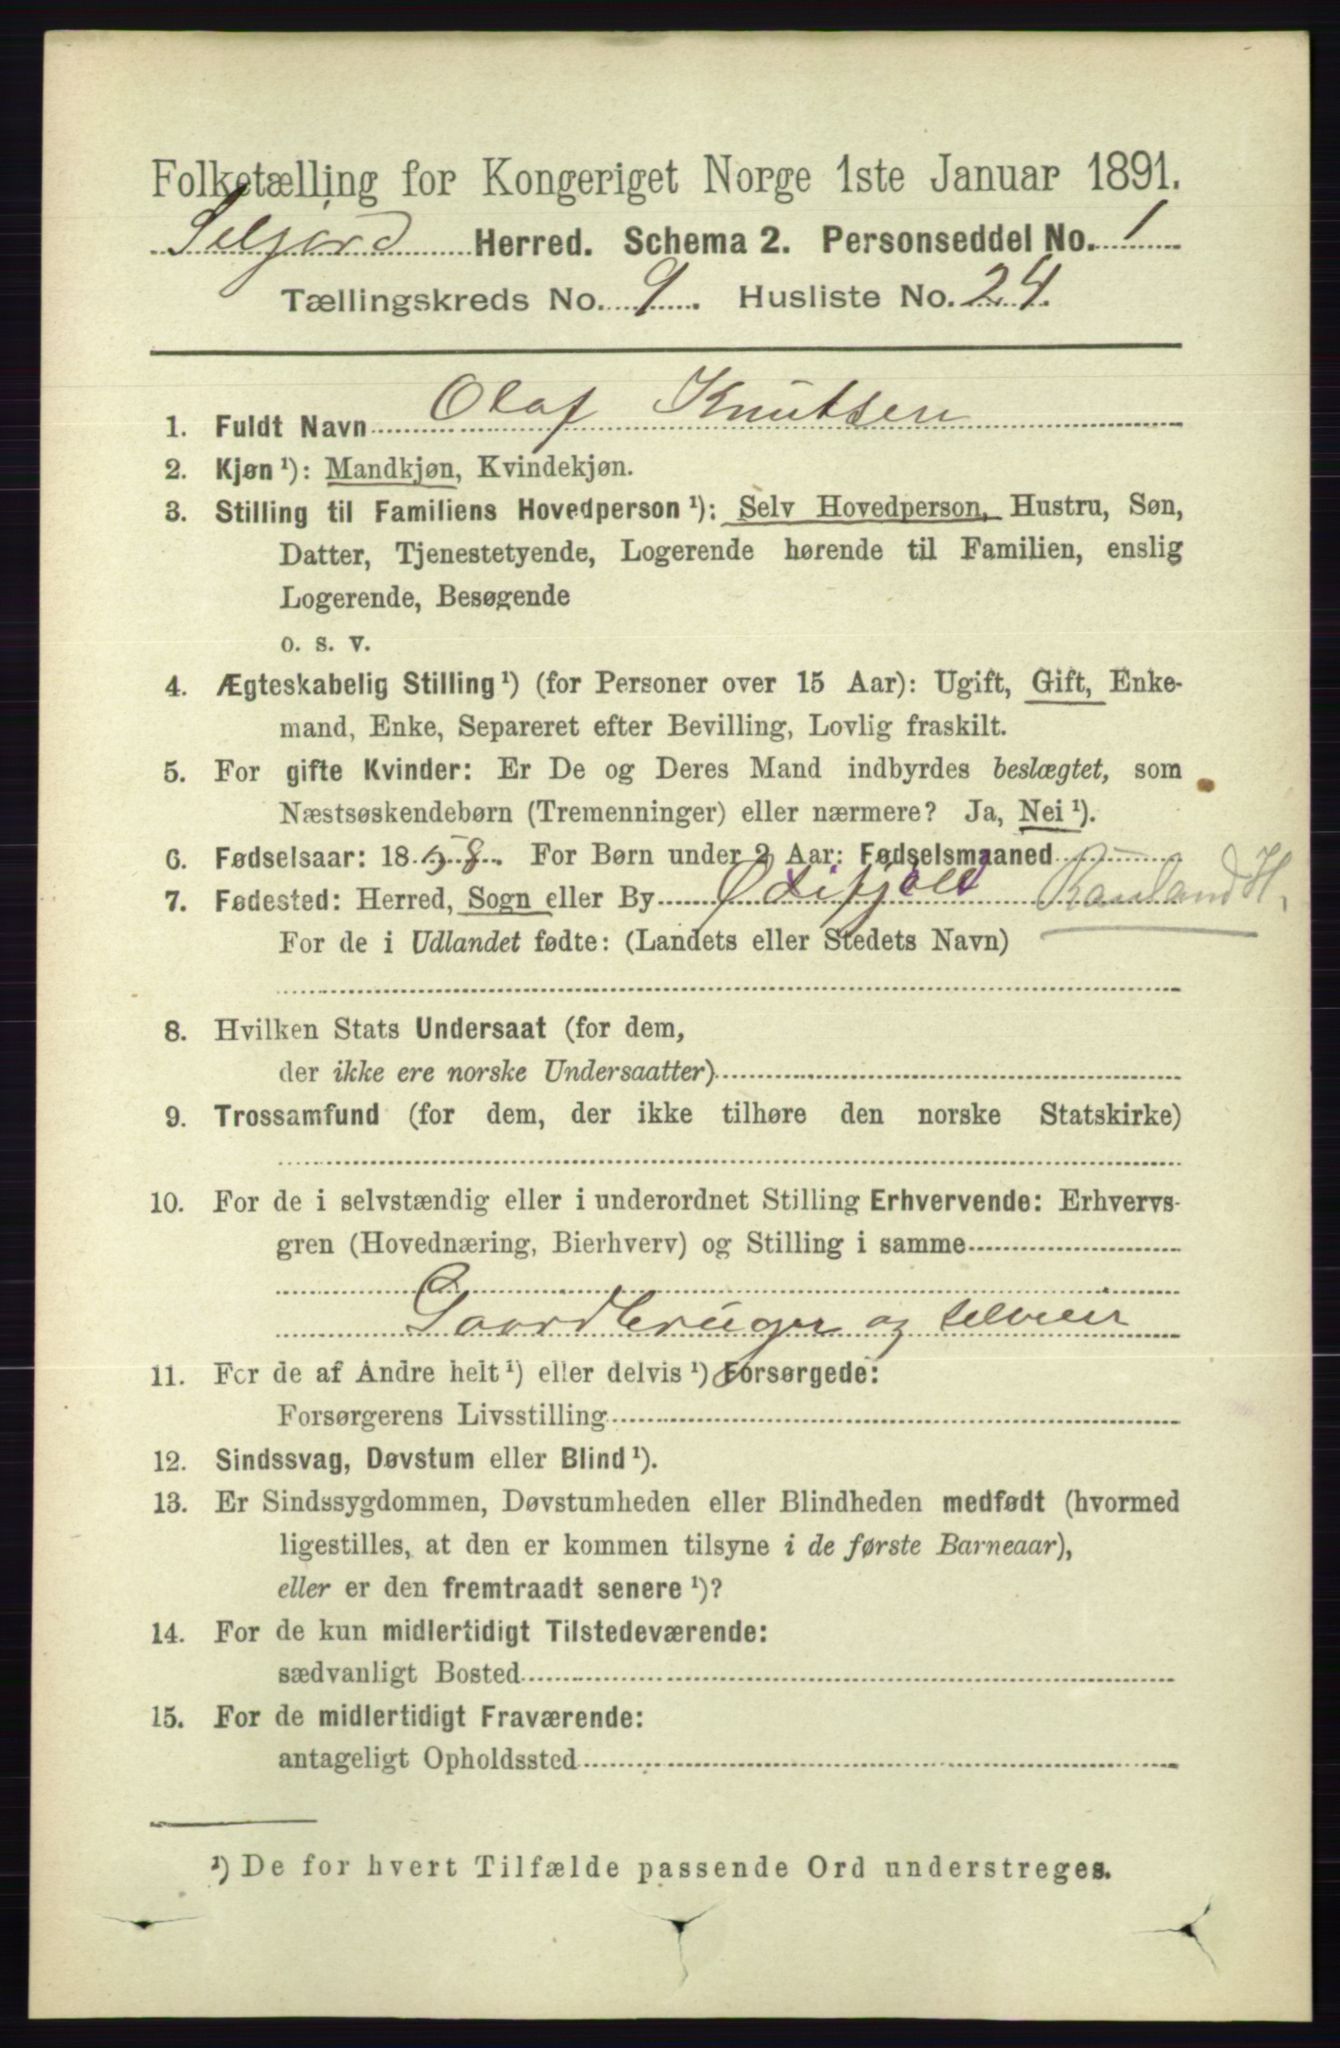 Folketælling for Kongeriget Norge 1ste Januar 1891.
Seljord Herred. Schema 2. Personseddel No. 1
Tællingskreds No. 9. Husliste No. 24.
1. Fuldt Navn Olaf Knutsen
2. Kjøn ¹): Mandkjøn, Kvindekjøn.
3. Stilling til Familiens Hovedperson ¹): Selv Hovedperson, Hustru, Søn,
Datter, Tjenestetyende, Logerende hørende til Familien, enslig
Logerende, Besøgende
o. s. v.
4. Ægteskabelig Stilling ¹) (for Personer over 15 Aar): Ugift, Gift, Enke-
mand, Enke, Separeret efter Bevilling, Lovlig fraskilt.
5. For gifte Kvinder: Er De og Deres Mand indbyrdes beslægtet, som
Næstsøskendebørn (Tremenninger) eller nærmere? Ja, Nei ¹).
6. Fødselsaar: 1858. For Børn under 2 Aar: Fødselsmaaned
7. Fødested: Herred, Sogn eller By Øifjeld Rauland H.
For de i Udlandet fødte: (Landets eller Stedets Navn)
8. Hvilken Stats Undersaat (for dem,
der ikke ere norske Undersaatter)
9. Trossamfund (for dem, der ikke tilhøre den norske Statskirke)
10. For de i selvstændig eller i underordnet Stilling Erhvervende: Erhvervs-
gren (Hovednæring, Bierhverv) og Stilling i samme
Gaardbruger og selveier
11. For de af Andre helt ¹) eller delvis ¹) Forsørgede:
Forsørgerens Livsstilling
12. Sindssvag, Døvstum eller Blind ¹).
13. Er Sindssygdommen, Døvstumheden eller Blindheden medfødt (hvormed
ligestilles, at den er kommen tilsyne i de første Barneaar),
eller er den fremtraadt senere ¹)?
14. For de kun midlertidigt Tilstedeværende:
sædvanligt Bosted
15. For de midlertidigt Fraværende:
antageligt Opholdssted
¹) De for hvert Tilfælde passende Ord understreges.